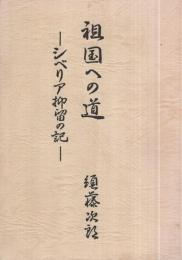 祖国への道
―シベリア抑留の記―
須藤次郎